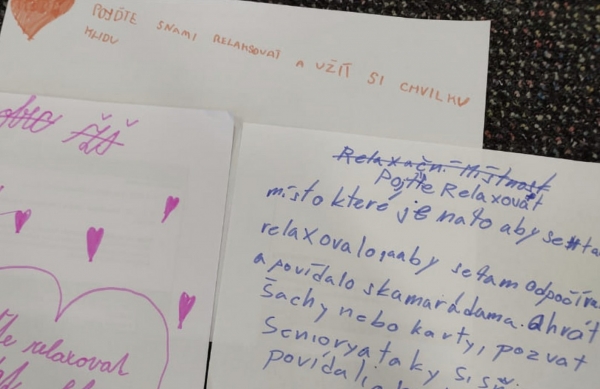 POJĎTE SNAMI RELAXSOVAT A UŽÍT SI CHVILKU
KLIDU
ŽŠ
Relaxační Místnost
Pojďte Relaxovat
místo které je nato aby se
relaxovalo, aaby setam odpočív
a povídalo skamarádama. Ahrát
Šachy nebo karty, pozvat
Seniory a taky si s
povídali
relaxovat